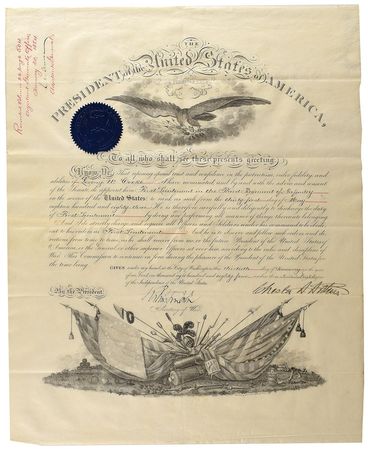 THE
PRESIDENT of the United States of AMERICA,
To all who shall see these presents greeting:
Know Ye, That reposing special trust and confidence in the patriotism, valor, fidelity and
abilities of I have nominated, and by and with the advice and consent
of the Senate, do appoint him First Lieutenant in the First Regiment of Infantry
in the service of the United States: to rank as such from the day of
eighteen hundred and eighty three. He is therefore carefully and diligently to discharge the duty
of First Lieutenant by doing and performing all manner of things thereunto belonging.
And I do strictly charge and require all Officers and Soldiers under his command to be obedi-
ent to his orders as First Lieutenant. And he is to observe and follow such orders and di-
rections from time to time, as he shall receive from me, or the future President of the United States of
America, or the General or other superior Officers set over him, according to the rules and discipline of
War. This Commission to continue in force during the pleasure of the President of the United States for
the time being.
GIVEN under my hand at the City of Washington this day of January in the year
of our Lord one thousand eight hundred and eighty four and in the year
of the Independence of the United States.
By the President
Chester A. Arthur
Secretary of War.